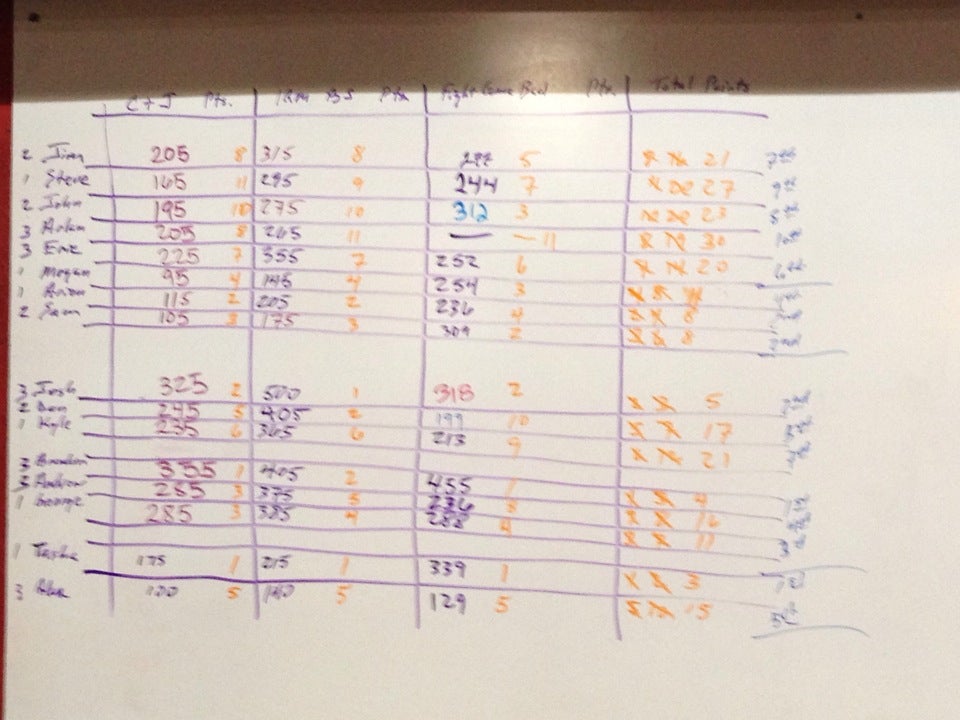 C + J Pts. 1RM BS Pts Fight Gone Bad Pts Total Points
2 Jim 205 8 315 8 5 21 7th
1 Steve 165 11 295 9 244 7 27 9th
2 John 195 10 275 10 312 3 23 8th
3 205 8 265 11 — — 11 30 10th
3 Eric 225 7 355 7 252 6 20 6th
1 Megan 95 4 145 4 254 3
1 115 2 205 2 236 4 8
2 Sam 105 3 175 3 309 2 8
3 Josh 325 2 500 1 318 2 5
2 Dan 245 5 405 2 199 10 17
1 Kyle 235 6 365 6 213 9 21
3 Brandon 335 1 405 2 455 1 4
3 285 3 375 5 236 8 16
1 George 285 3 385 4 288 4 11
1 Tasha 175 1 215 1 339 1 3 1st
3 5 5 129 5 15 5th